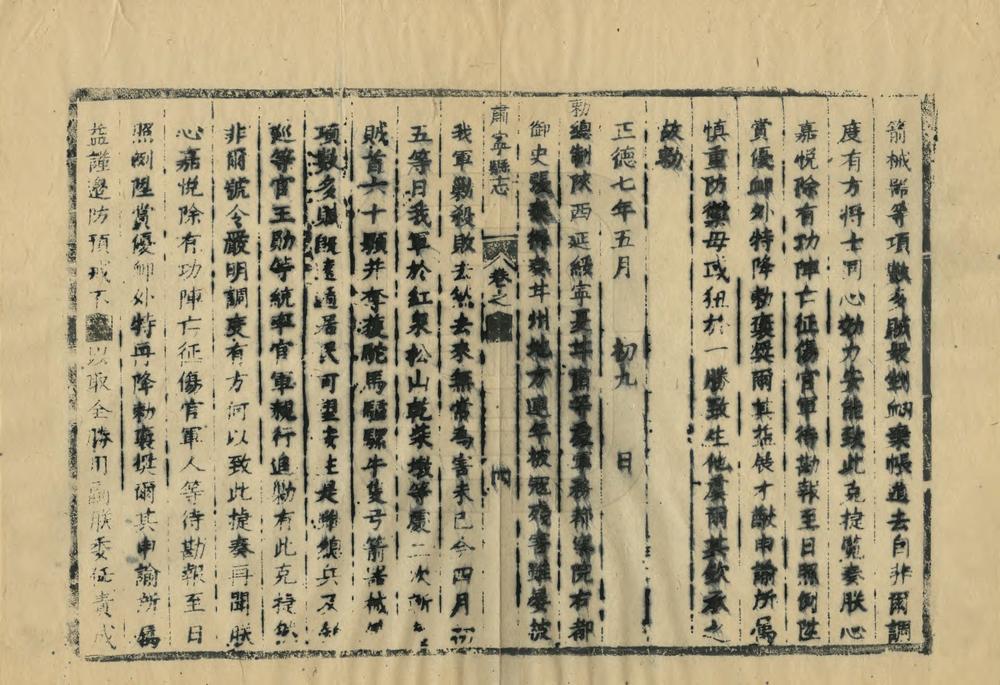 箭械器等項數多賊衆剉衂棄帳遁去自非爾調
度有方將士同心効力安能致此克捷覽奏朕心
嘉悅除有功陣亡征傷官軍待勘報至日照例陞
賞優卹外特降勑奬爾其益展才猷申諭所屬
慎重防禦毋或狃於一勝致生他虞爾其欽承之
故勑
正德七年五月 初九 日
勑總制陝西延綏寧夏甘肅等處軍務都察院右都
御史張泰得奏甘州地方連年被寇殘害雖嘗被
肅寧縣志 卷之 四
我軍剿殺敗去然去來無常為害未已今四月初
五等日我軍於紅泉松山乾柴墩等處二次斬
賊首六十顆并奪獲駝馬驢騾牛隻弓箭器械
項數多賊遁居民可望安生是雖總兵及
巡等官王勛等統率官軍親行追勦有此克捷然
非爾號令嚴明調度有方何以致此捷奏再聞朕
心嘉悅除有功陣亡征傷官軍人等待勘報至日
照例陞賞優卹外特再降勑奬爾其申諭所屬
益謹邊防預戒不以取全勝用副朕委任責成